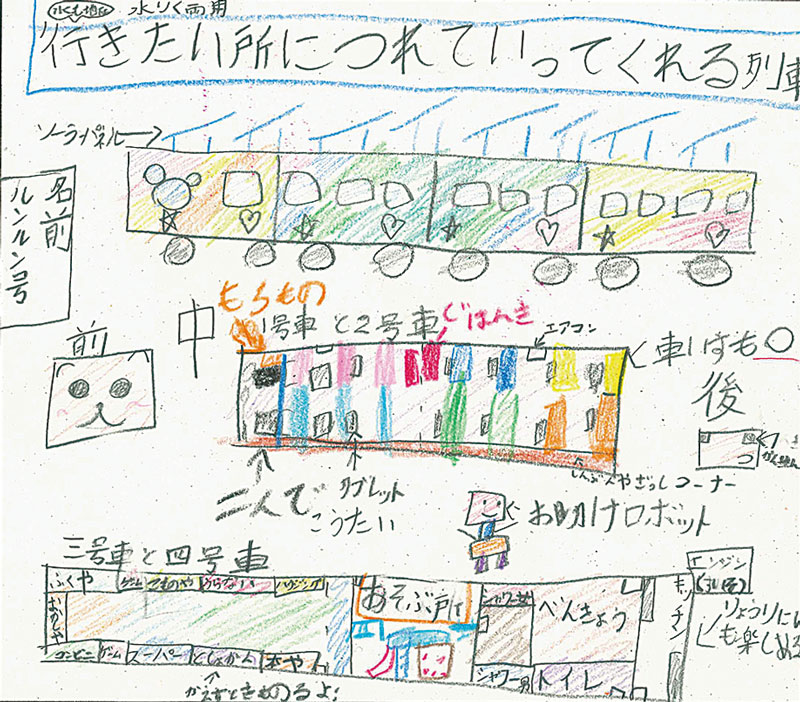 水りく両用
行きたい所につれていってくれる列車
ソーラーパネル→
名前
ルンルン号
前
中
もちもの
1号車と2号車
じはんき
エアコン
車いすも○
後
二人で
こうたい
タブレット
しんぶんやざっしコーナー
お助けロボット
三号車と四号車
ふくや
ゲーム
うらない
おかしや
コンビニ
ゲーム
スーパー
としょかん
本や
かえすときものるよ!
あそぶ所
シャワー女
シャワー男
べんきょう
トイレ
キッチン
エンジン
りょうりに
も楽しめる